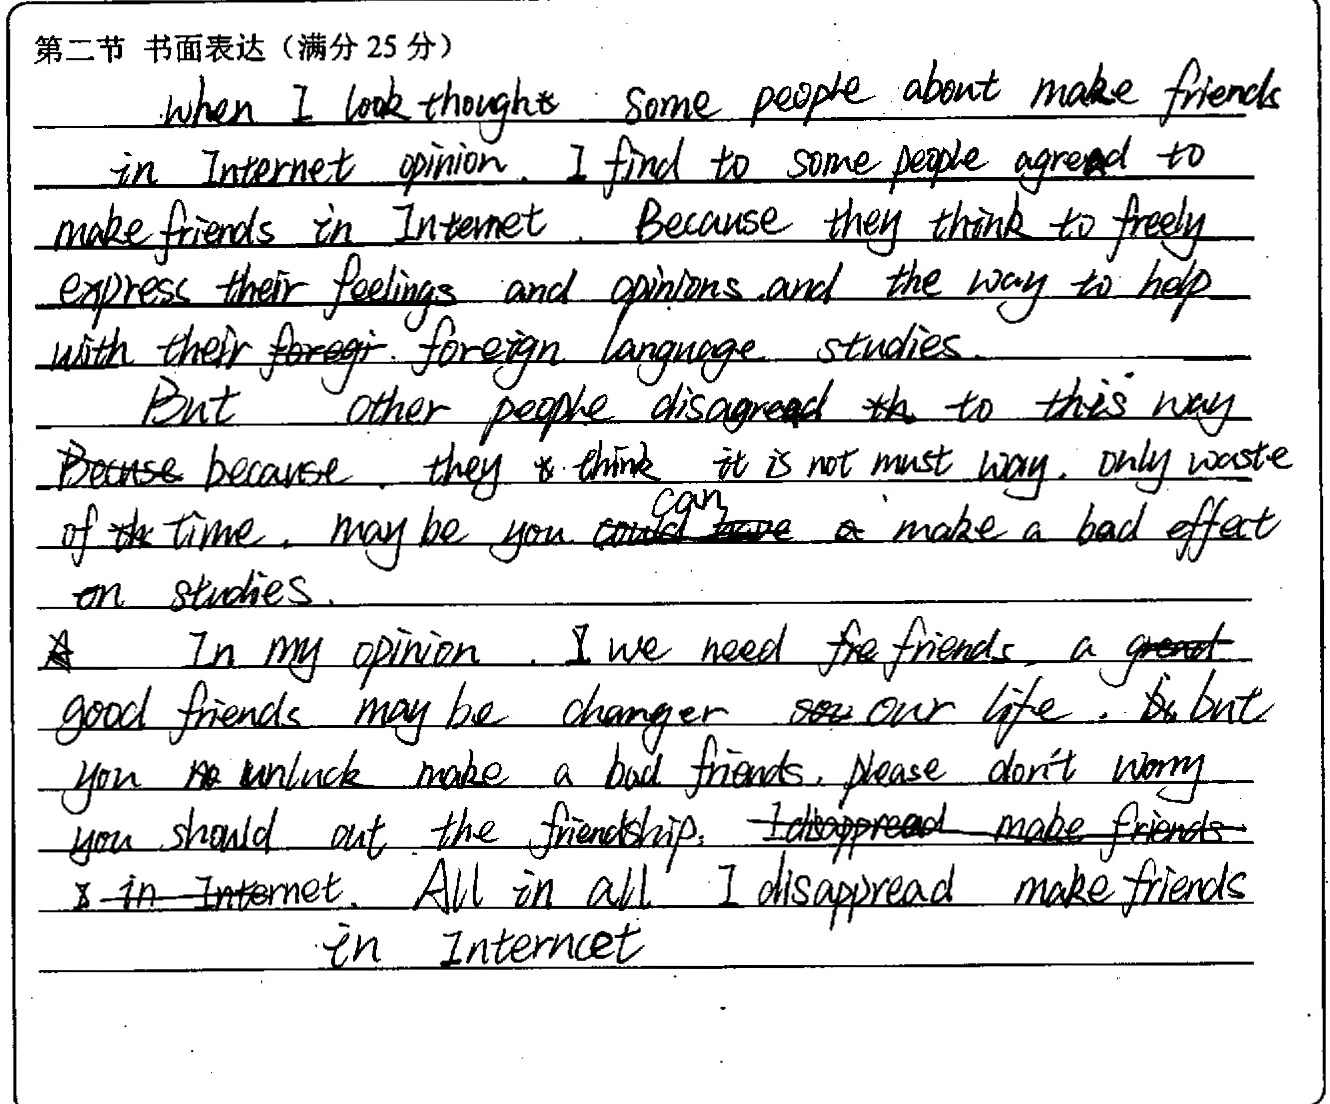 第二节 书面表达（满分 25 分）
when I look thought some people about make friends
in Internet opinion. I find to some people agreed to
make friends in Internet. Because they think to freely
express their feelings and opinions and the way to help
with their foregr. foreign language studies.
But other people disagreed th to this way
Becuse because. they think it is not must way. only waste
of th time. may be you can make a bad effect
on studies.
In my opinion. I we need fre friends a great
good friends may be changer our life. but
you unluck make a bad friends. please don't worry
you should out the friendship. I disappread make friends
in Internet. All in all I disappread make friends
in Interncet